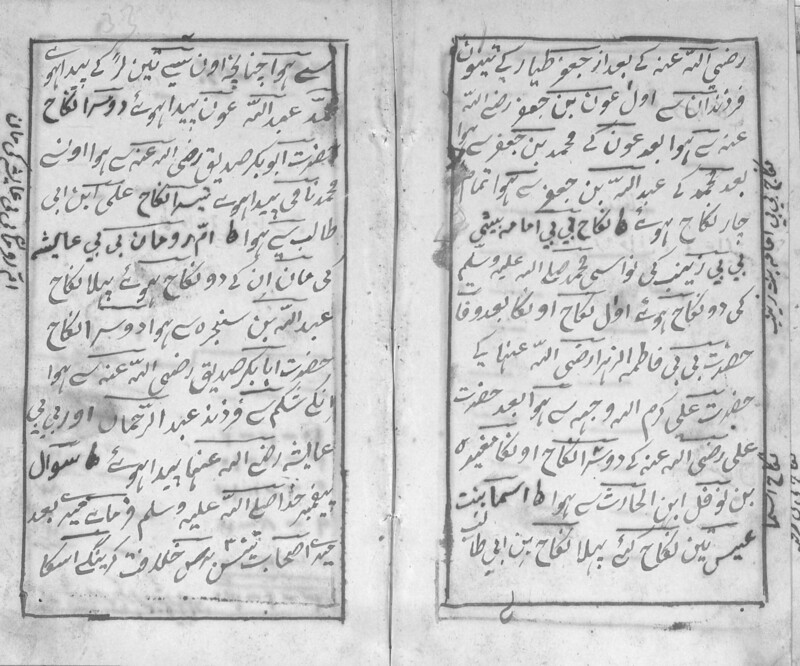 رضی اللہ عنہ کے بعد از جعفر طیار کے تینون
فرزندان سے اول عون بن جعفر رضی اللہ
عنہ سے ہوا بعد عون کے محمد بن جعفر سے ہوا
بعد محمد کے عبد اللہ بن جعفر سے ہوا تمام
چار نکاح ہوئے ط نکاح بی بی امامہ بیٹی
بی بی زینب کی نواسی محمد صلے اللہ علیہ وسلم
کی دو نکاح ہوئے اول نکاح اونکا بعد وفات
حضرت بی بی فاطمہ الزہرا رضی اللہ عنہا کے
حضرت علی کرم اللہ وجہہ سے ہوا بعد حضرت
علی رضی اللہ عنہ کے دوسرا نکاح اونکا مغیرہ
بن نوفل ابن الحارث سے ہوا ط اسما بنت
عمیس تین نکاح کئے پہلا نکاح بن ابی طالب
سے ہوا چنانچہ اون سے تین لڑکے پیدا ہوے
محمد عبد اللہ عون پیدا ہوئے دوسرا نکاح
حضرت ابو بکر صدیق رضی اللہ عنہ سے ہوا اونسے
محمد نامی پیدا ہوے تیسرا نکاح علی ابن ابی
طالب سے ہوا ط ام رومان بی بی عایشہ
کی مان ان کے دو نکاح ہوئے پہلا نکاح
عبد اللہ بن سنجرہ سے ہوا دوسرا نکاح
حضرت ابابکر صدیق رضی اللہ عنہ سے ہوا
انکے شکم سے فرزند عبد الرحمان اور بی بی
عایشہ رضی اللہ عنہا پیدا ہوئے ط سوال
پیغمبر خدا صلے اللہ علیہ وسلم فرمائے بعد
اصحاب برس خلافت کرینگے اسکا
ام رومان بی بی عایشہ کی مان
نکاح اسما